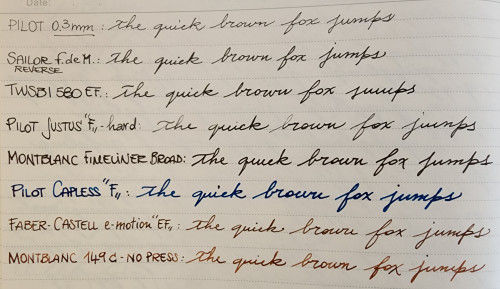 Date:
PILOT 0.3mm: the quick brown fox jumps
SAILOR F. de M.: the quick brown fox jumps
REVERSE
TWSBI 580 EF.: the quick brown fox jumps
PILOT JUSTUS "F„ - hard: the quick brown fox jumps
MONTBLANC FINELINER BROAD: the quick brown fox jumps
PILOT CAPLESS "F„: the quick brown fox jumps
FABER-CASTELL e-motion "EF„: the quick brown fox jumps
MONTBLANC 149 c - NO PRESS: the quick brown fox jumps